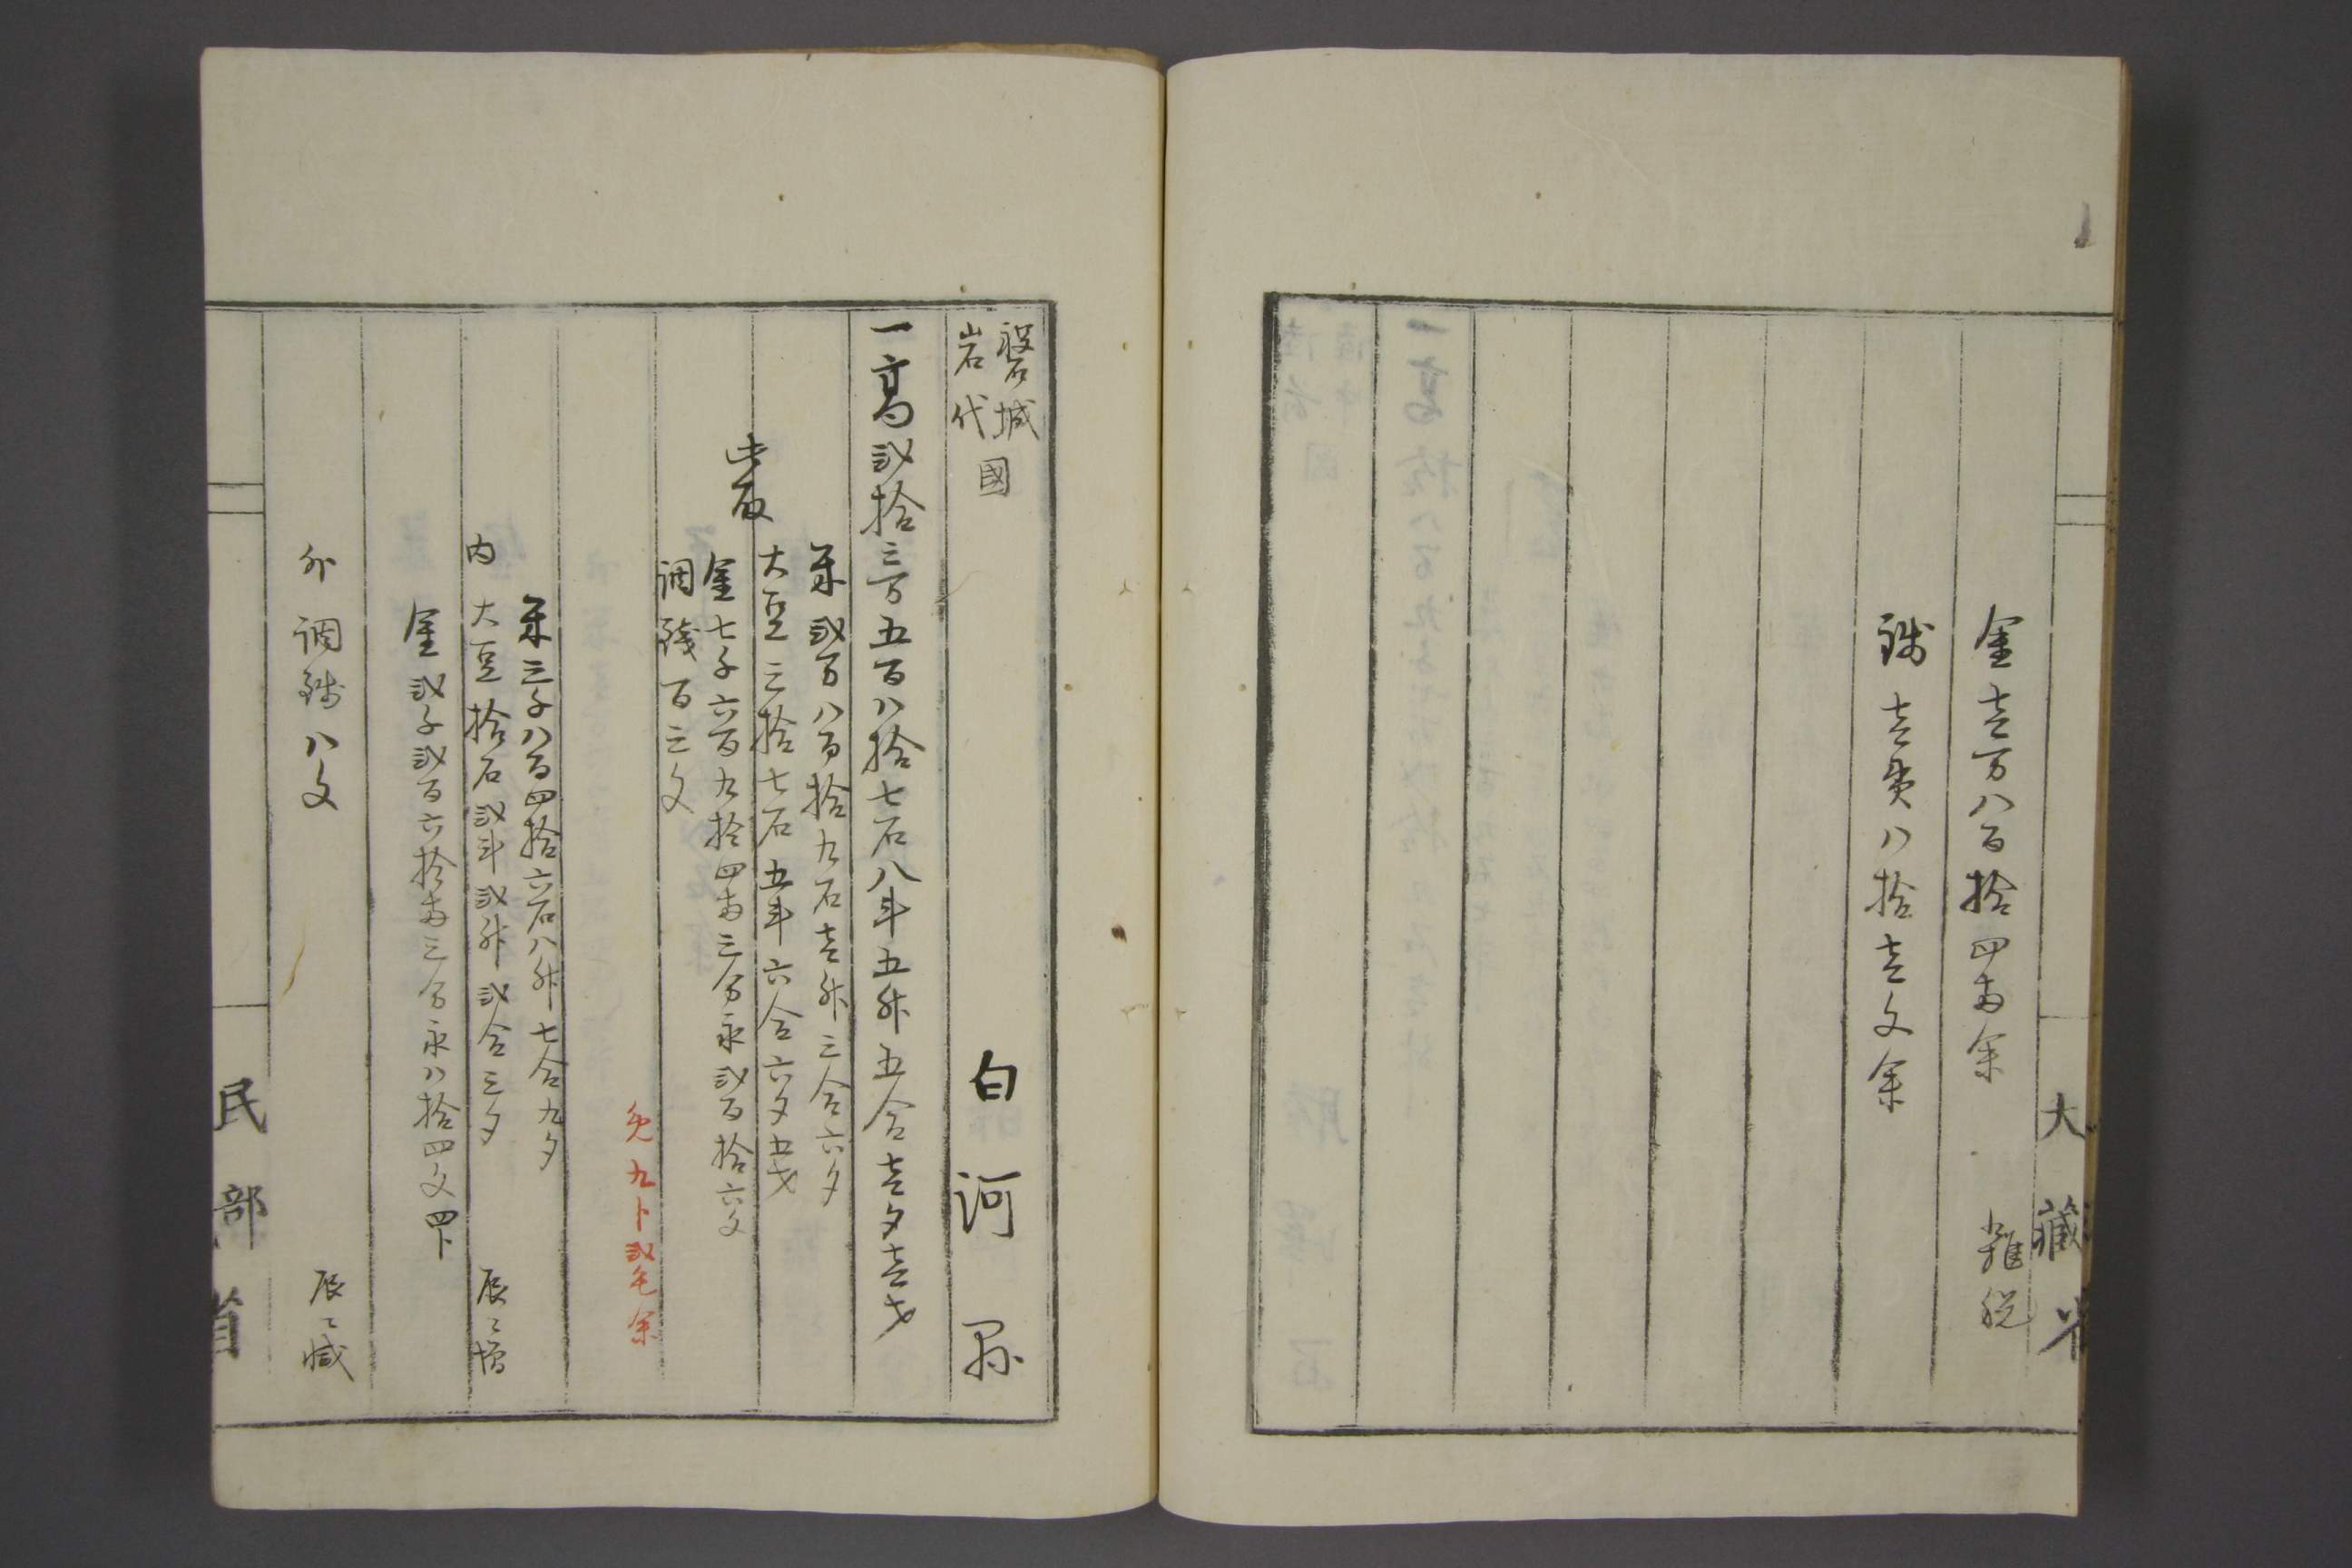 金壱万八百拾四両余
雑税
銭壱貫八拾壱文余
大藏省
磐城
岩代
國
白河縣
一高弐拾三万五百八拾七石八斗五升五合壱夕壱才
此取
米弐万八百拾九石壱升三合六夕
大豆三拾七石五斗六合六夕五才
金七千六百九拾四両三分永弐百拾六文
調銭百三文
免九卜弐毛余
内
米三千八百四拾六石八升七合九夕
大豆拾石弐斗弐升弐合三夕
辰ゟ増
金弐千弐百六拾両三分永八拾四文四卜
外調銭八文
辰ゟ減
民部省